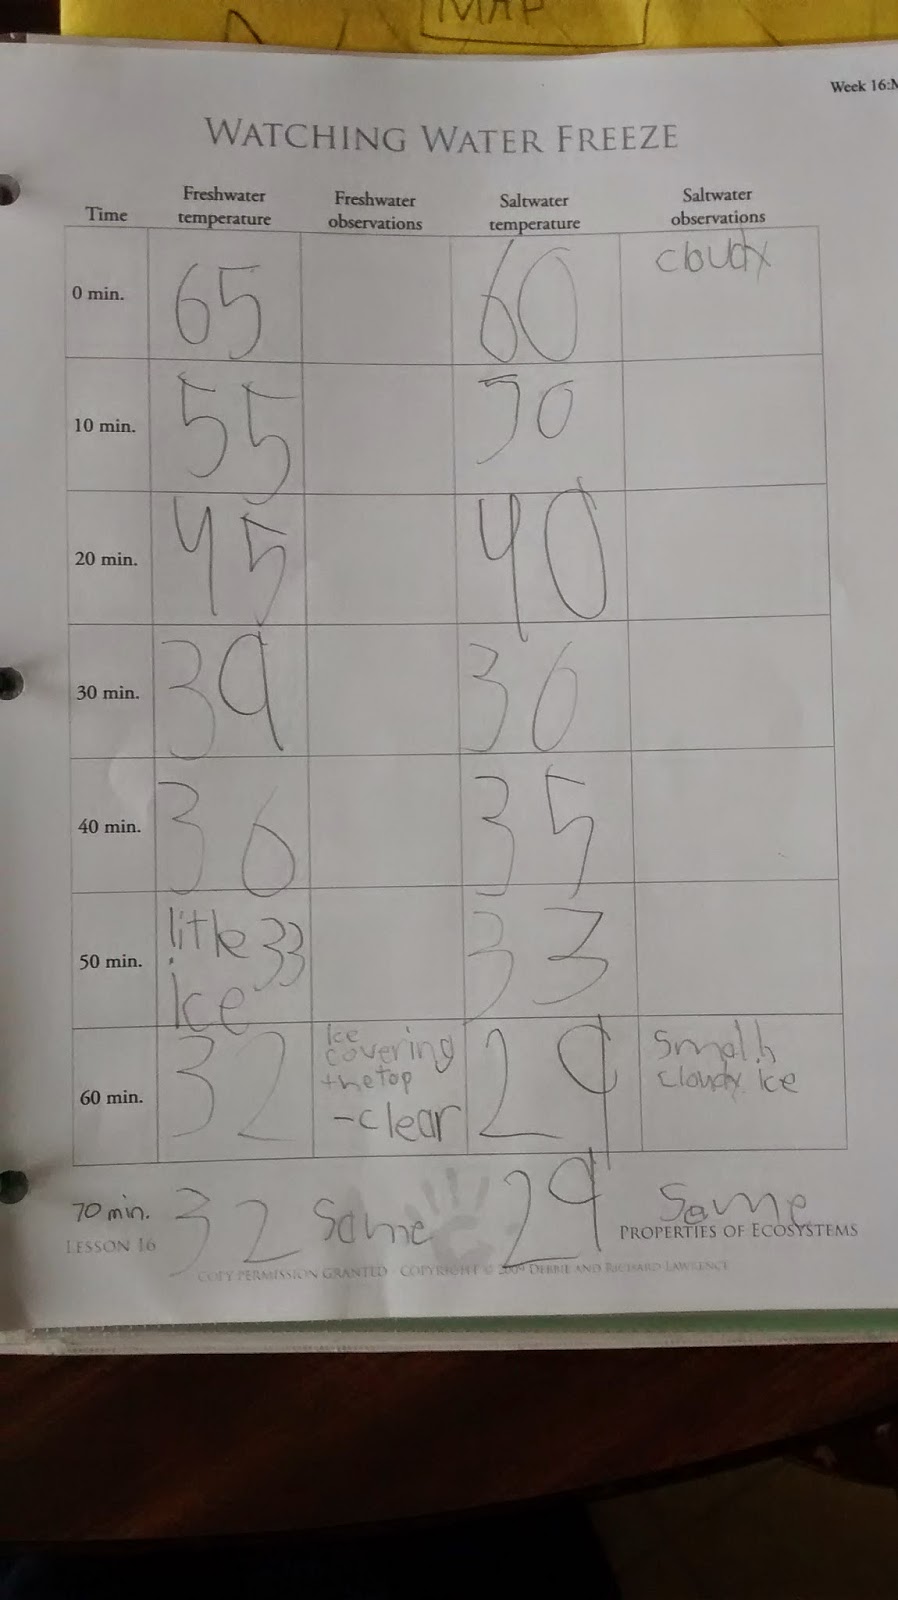 MAP
Week 16:M
WATCHING WATER FREEZE
Time Freshwater temperature Freshwater observations Saltwater temperature Saltwater observations
0 min. 65 60 cloudy
10 min. 55 50
20 min. 45 40
30 min. 39 36
40 min. 36 35
50 min. little ice 33 33
60 min. 32 Ice covering the top -clear 29 Small cloudy ice
70 min. 32 Same 29 Same
LESSON 16 PROPERTIES OF ECOSYSTEMS
COPY PERMISSION GRANTED COPYRIGHT © 2009 DEBBIE AND RICHARD LAWRENCE